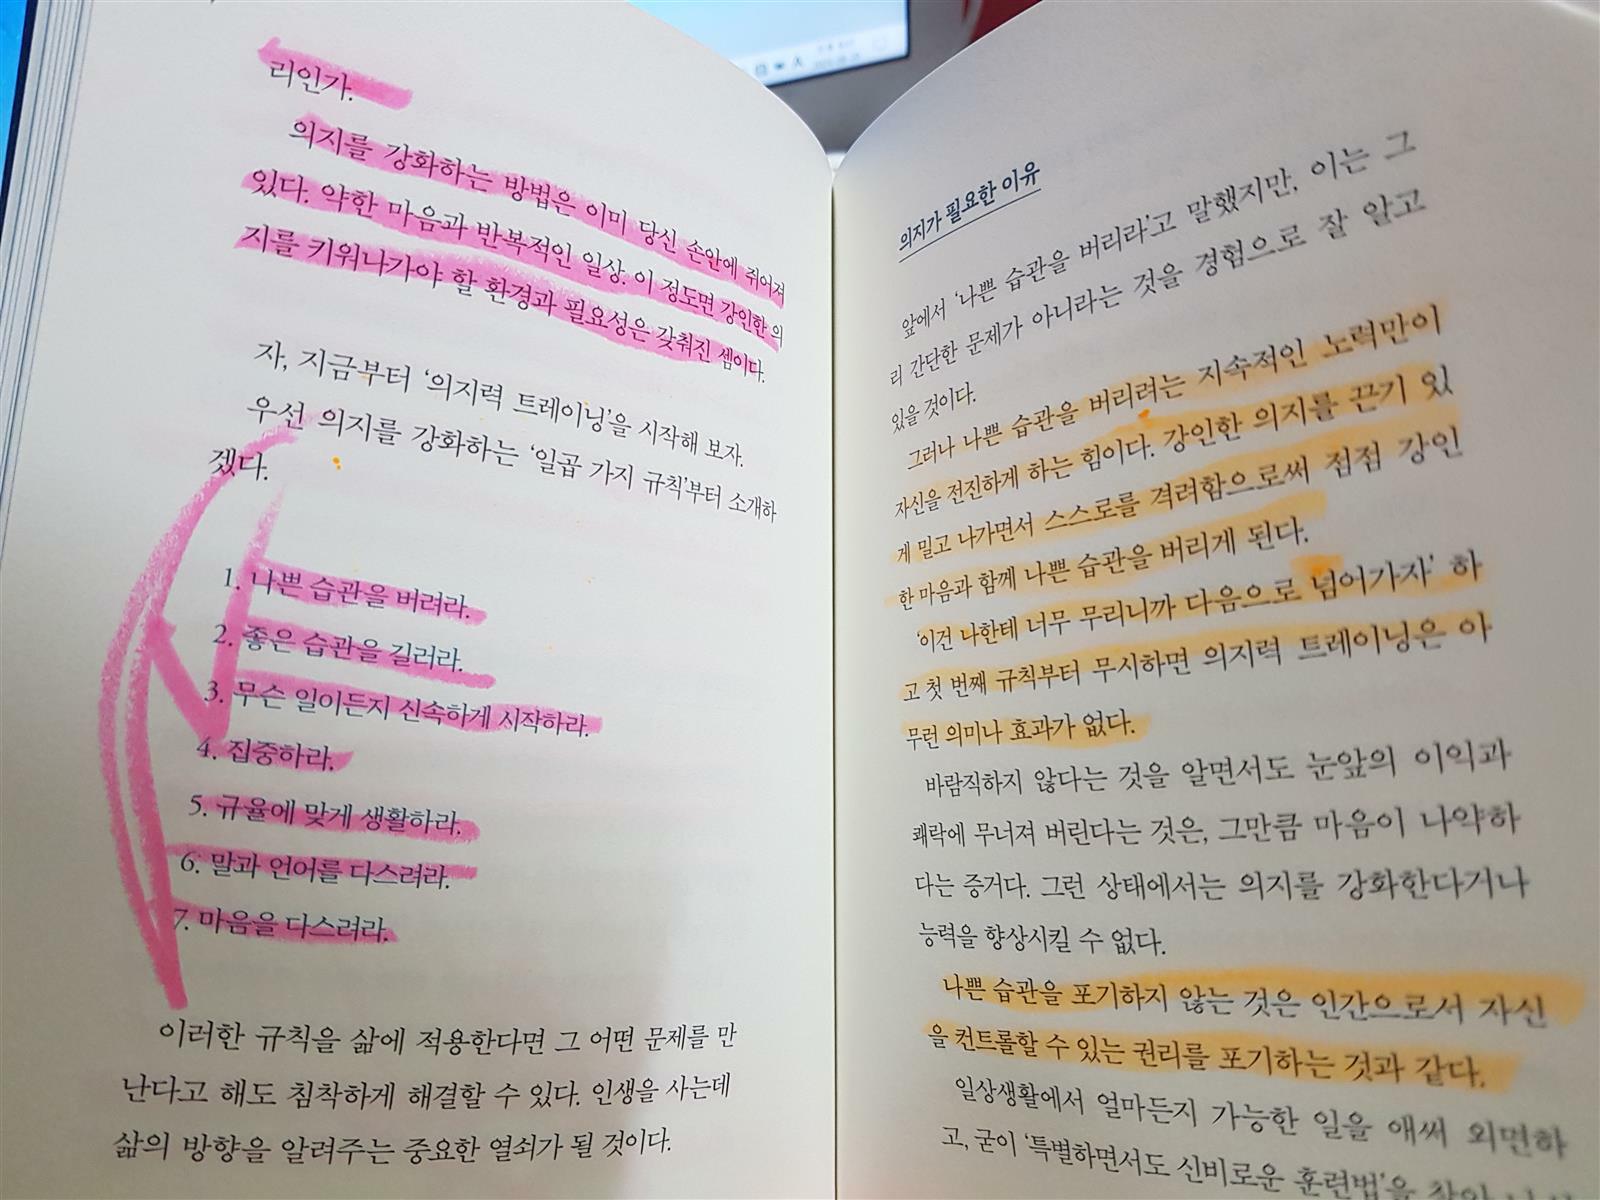 리인가.
의지를 강화하는 방법은 이미 당신 손안에 쥐어져
있다. 약한 마음과 반복적인 일상. 이 정도면 강인한 의
지를 키워나가야 할 환경과 필요성은 갖춰진 셈이다.
자, 지금부터 ‘의지력 트레이닝’을 시작해 보자.
우선 의지를 강화하는 ‘일곱 가지 규칙’부터 소개하
겠다.
1. 나쁜 습관을 버려라.
2. 좋은 습관을 길러라.
3. 무슨 일이든지 신속하게 시작하라.
4. 집중하라.
5. 규율에 맞게 생활하라.
6. 말과 언어를 다스려라.
7. 마음을 다스려라.
이러한 규칙을 삶에 적용한다면 그 어떤 문제를 만
난다고 해도 침착하게 해결할 수 있다. 인생을 사는데
삶의 방향을 알려주는 중요한 열쇠가 될 것이다.
의지가 필요한 이유
앞에서 ‘나쁜 습관을 버리라’고 말했지만, 이는 그
리 간단한 문제가 아니라는 것을 경험으로 잘 알고
있을 것이다.
그러나 나쁜 습관을 버리려는 지속적인 노력만이
자신을 전진하게 하는 힘이다. 강인한 의지를 끈기 있
게 밀고 나가면서 스스로를 격려함으로써 점점 강인
한 마음과 함께 나쁜 습관을 버리게 된다.
‘이건 나한테 너무 무리니까 다음으로 넘어가자’ 하
고 첫 번째 규칙부터 무시하면 의지력 트레이닝은 아
무런 의미나 효과가 없다.
바람직하지 않다는 것을 알면서도 눈앞의 이익과
쾌락에 무너져 버린다는 것은, 그만큼 마음이 나약하
다는 증거다. 그런 상태에서는 의지를 강화한다거나
능력을 향상시킬 수 없다.
나쁜 습관을 포기하지 않는 것은 인간으로서 자신
을 컨트롤할 수 있는 권리를 포기하는 것과 같다.
일상생활에서 얼마든지 가능한 일을 애써 외면하
고, 굳이 ‘특별하면서도 신비로운 훈련법’을